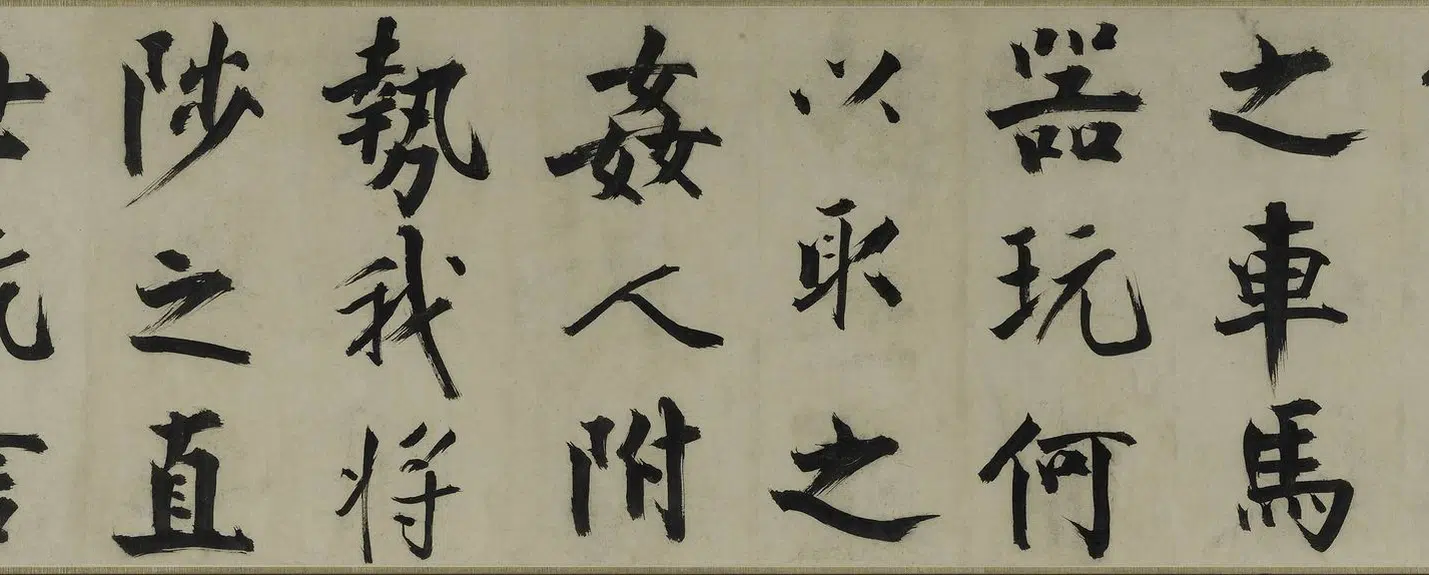 之車馬
器玩何
以取之
姦人附
勢我將
陟之直